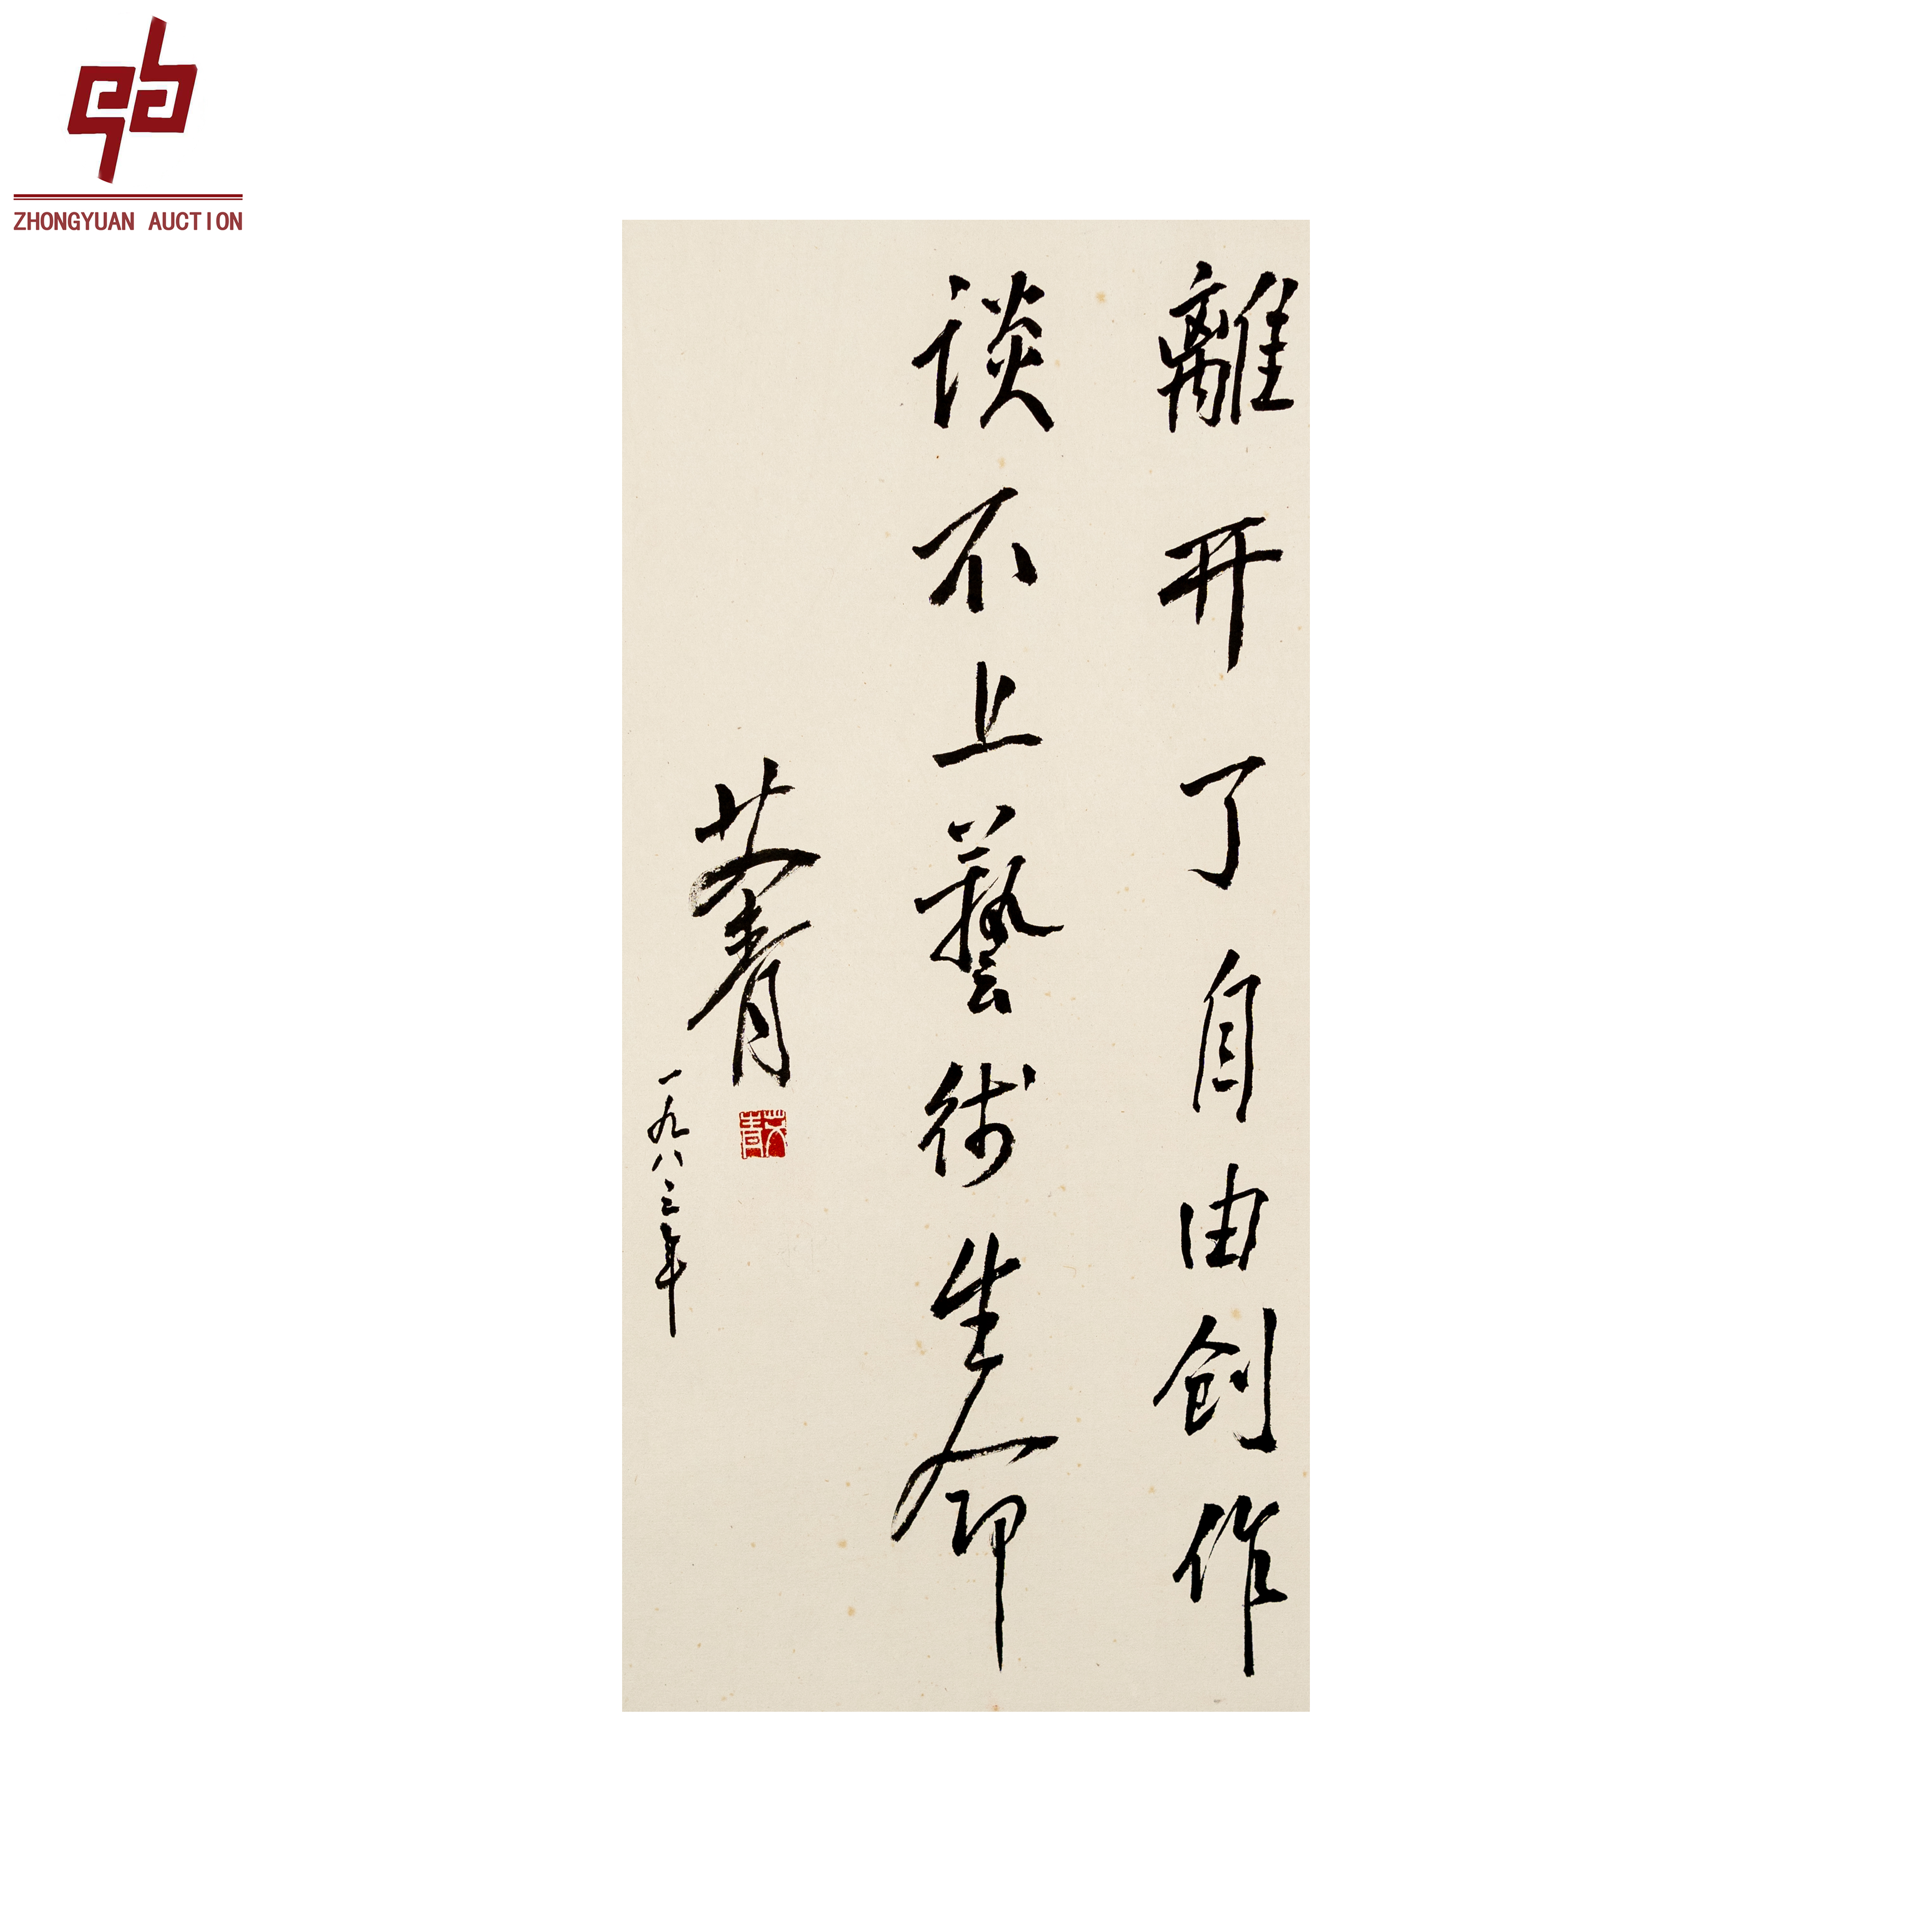 ZHONGYUAN AUCTION
離开了自由創作
談不上藝術生命
艾青
一九八三年
艾青